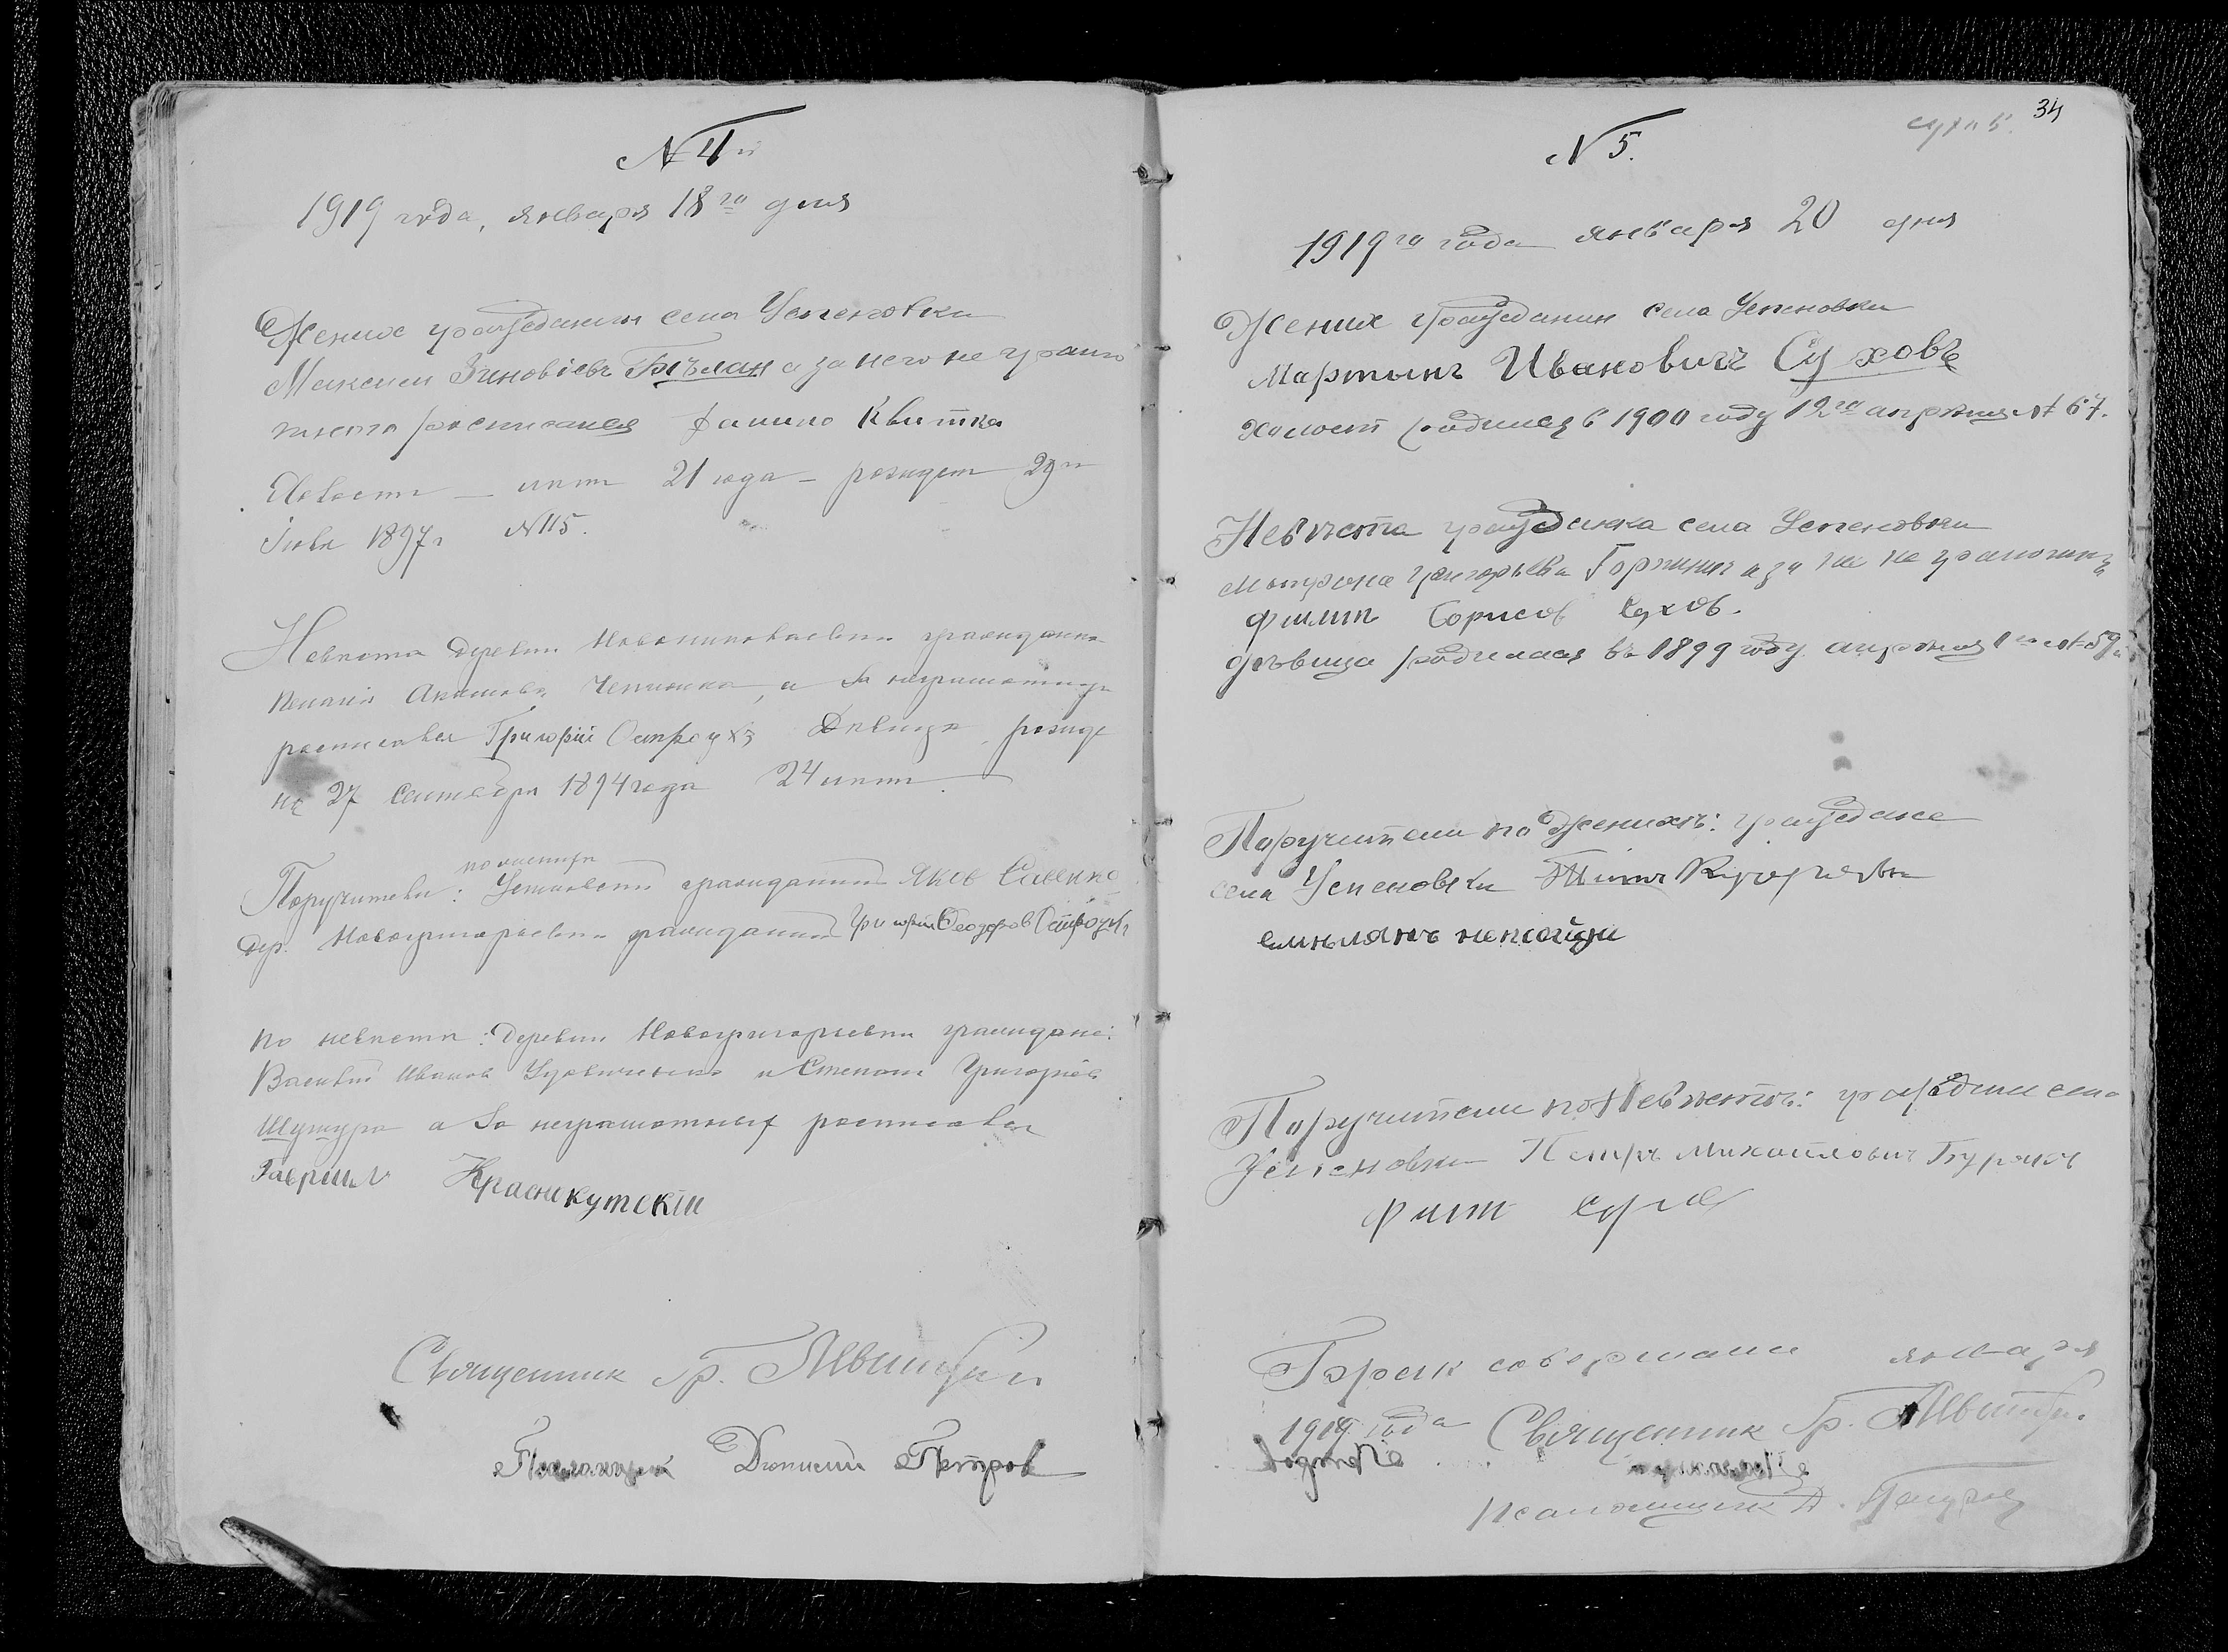 № 4й
1919 года, января 18го дня
Жених гражданин села Успеновки
Максим Зиновіевъ Бѣлан а за него не грамо
тного росписался Данило Квитка
Холост — лет 21 года — рожден 29го
Іюля 1897г №115.
Невеста деревни Новониколаевки гражданка
Чепижка, а за неграмотную
росписался Григорій Остроухъ Девица рожде
на 27 Сентября 1894 года 24 лет.
по жениху
Поручители: Успеновки гражданин Яков Савенко
дер. Новогригорьевки гражданин Григорий Феодоров Остроухъ
по невесте: Деревни Новогригорьевки граждане:
Василий Иванов и Степан Григорьев
Шушура а за неграмотных росписался
Гавриил Краснокутскій
Священник Гр. Левитский
Псаломщик Дионисий Петров
34
Сухов
№ 5.
1919го года января 20 дня
Жених гражданин села Успеновки
Мартынъ Ивановичъ Суховъ
холост родился в 1900 году 12го апрѣля № 67.
Невѣста гражданка села Успеновки
Григорьева а за не грамотную
Филип Борисов Сухов.
дѣвица родилась въ 1899 году апрѣля 1го № 59
Поручители по Женихѣ: граждане
села Успеновки
емильянъ непойда
Поручители по Невѣстѣ: граждане села
Успеновки Петръ Михайловичъ Бурякъ
Филип Сухов
Брак совершали января
1919 года Священник Гр. Левитский
Псаломщик Д. Петров